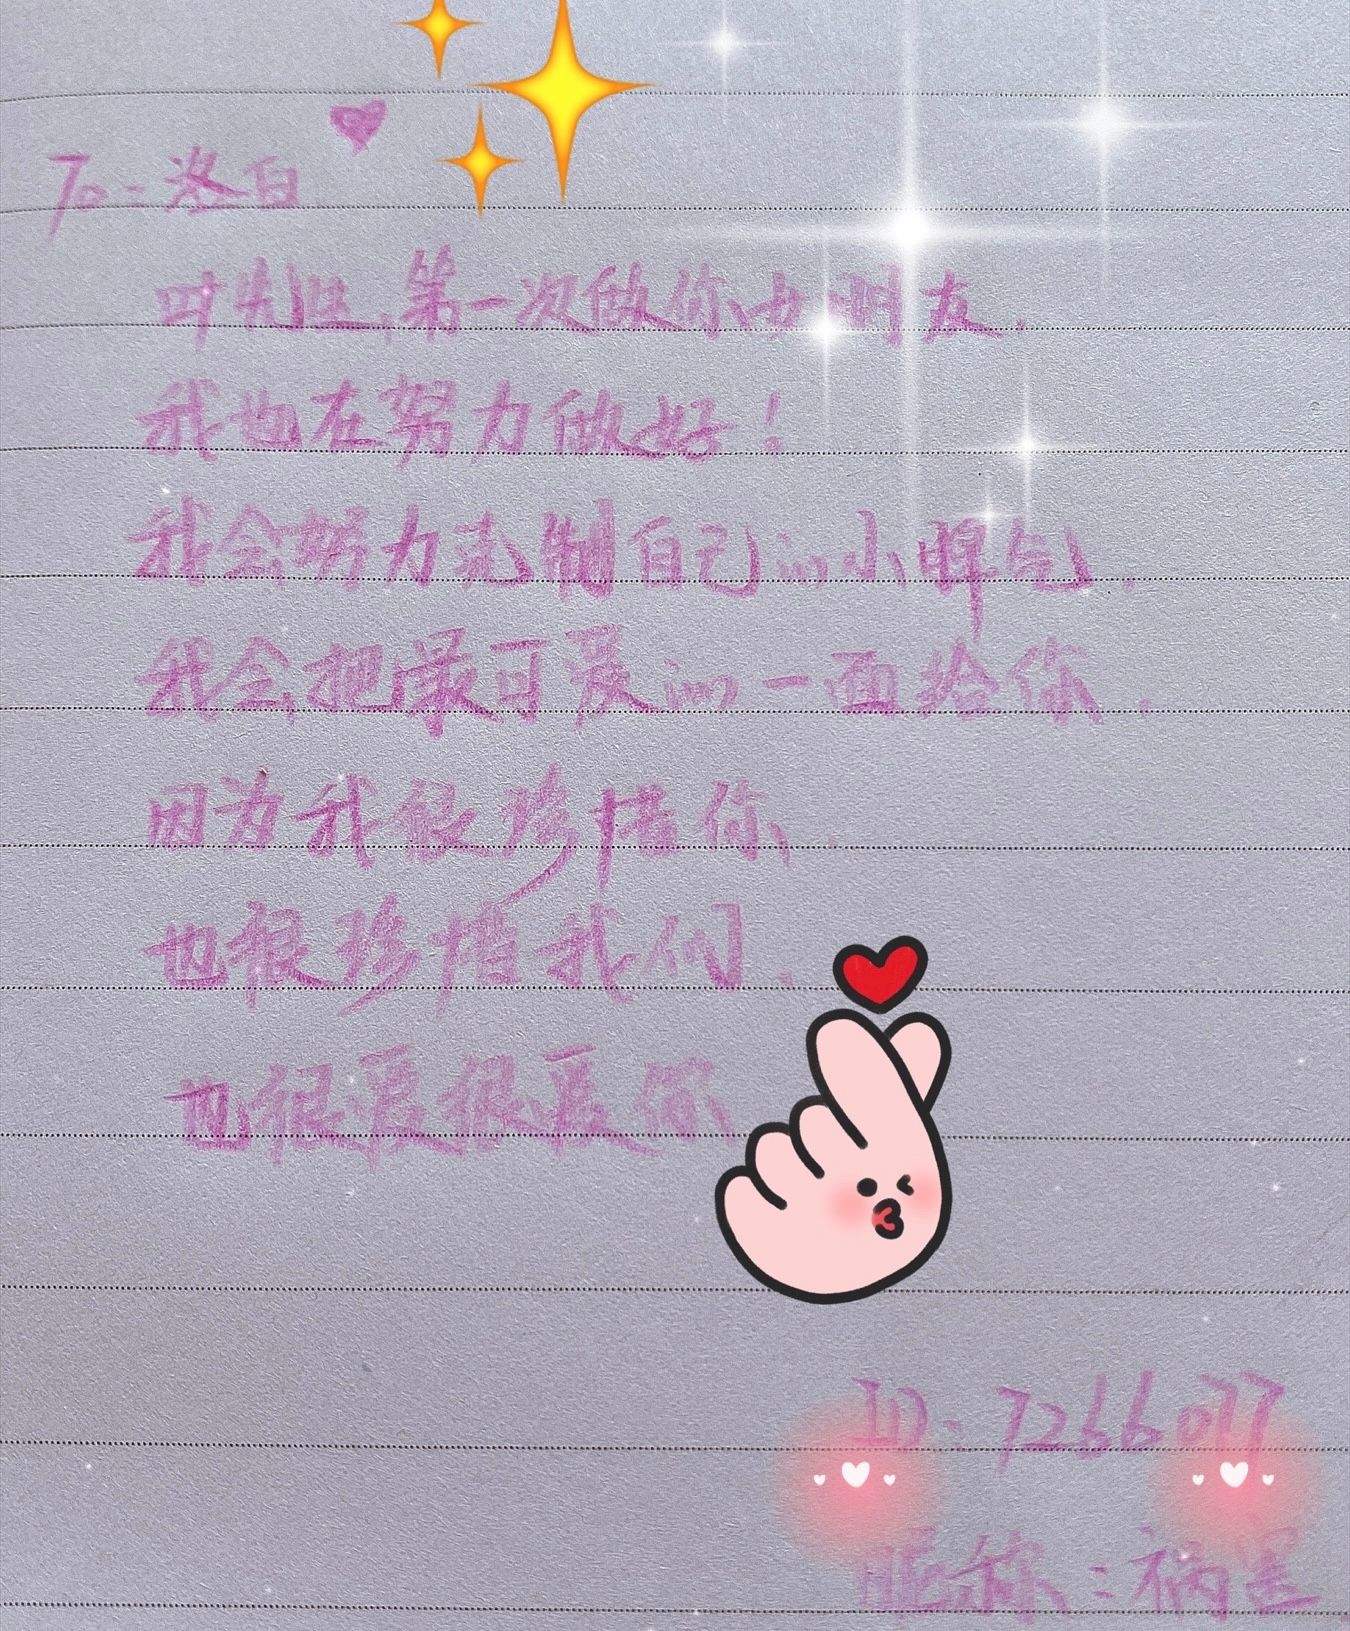 To:洛白
叶先生,第一次做你女朋友.
我也在努力做好！
我会努力克制自己的小脾气.
我会把最可爱的一面给你.
因为我很珍惜你、
也很珍惜我们、
也很爱很爱你
ID:7266077
昵称:祸